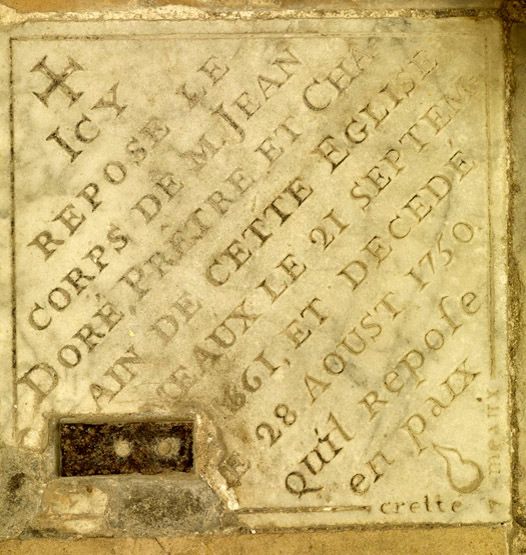 ICY
REPOSE LE
CORPS DE M. JEAN
DORÉ PRÊTRE ET CHA
AIN DE CETTE EGLISE
EAUX LE 21 SEPTEM
1661, ET DECEDÉ
LE 28 AOUST 1750.
qu'il repose
en paix
crette A MEAUX